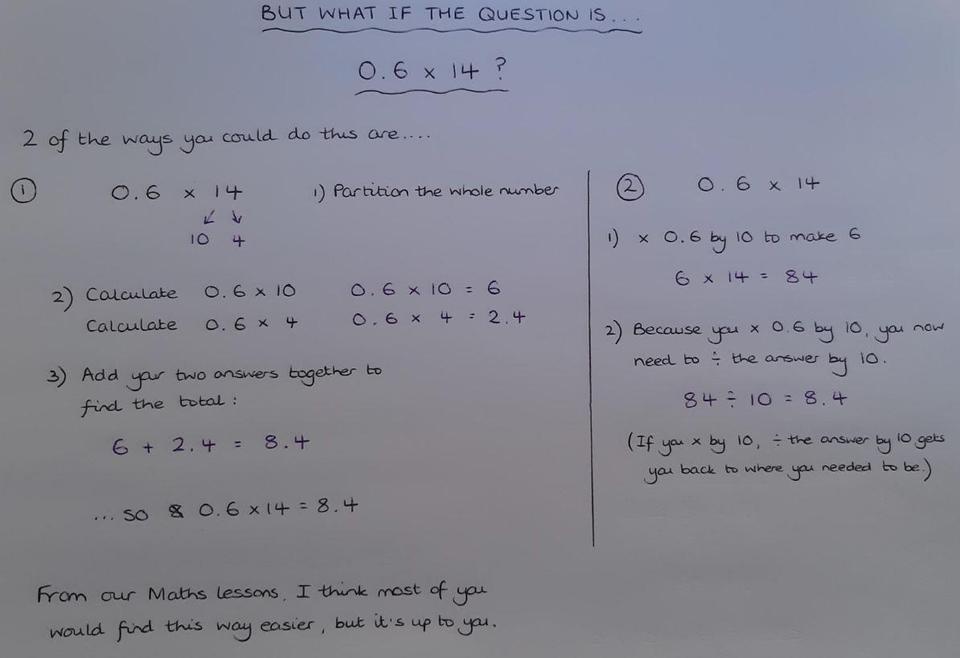 BUT WHAT IF THE QUESTION IS...
0.6 x 14 ?
2 of the ways you could do this are....
① 0.6 x 14 1) Partition the whole number
↙ ↘
10 4
2) Calculate 0.6 x 10 0.6 x 10 = 6
Calculate 0.6 x 4 0.6 x 4 = 2.4
3) Add your two answers together to
find the total :
6 + 2.4 = 8.4
... so 0.6 x 14 = 8.4
From our Maths lessons, I think most of you
would find this way easier, but it's up to you.
② 0.6 x 14
1) x 0.6 by 10 to make 6
6 x 14 = 84
2) Because you x 0.6 by 10, you now
need to ÷ the answer by 10.
84 ÷ 10 = 8.4
(If you x by 10, ÷ the answer by 10 gets
you back to where you needed to be.)